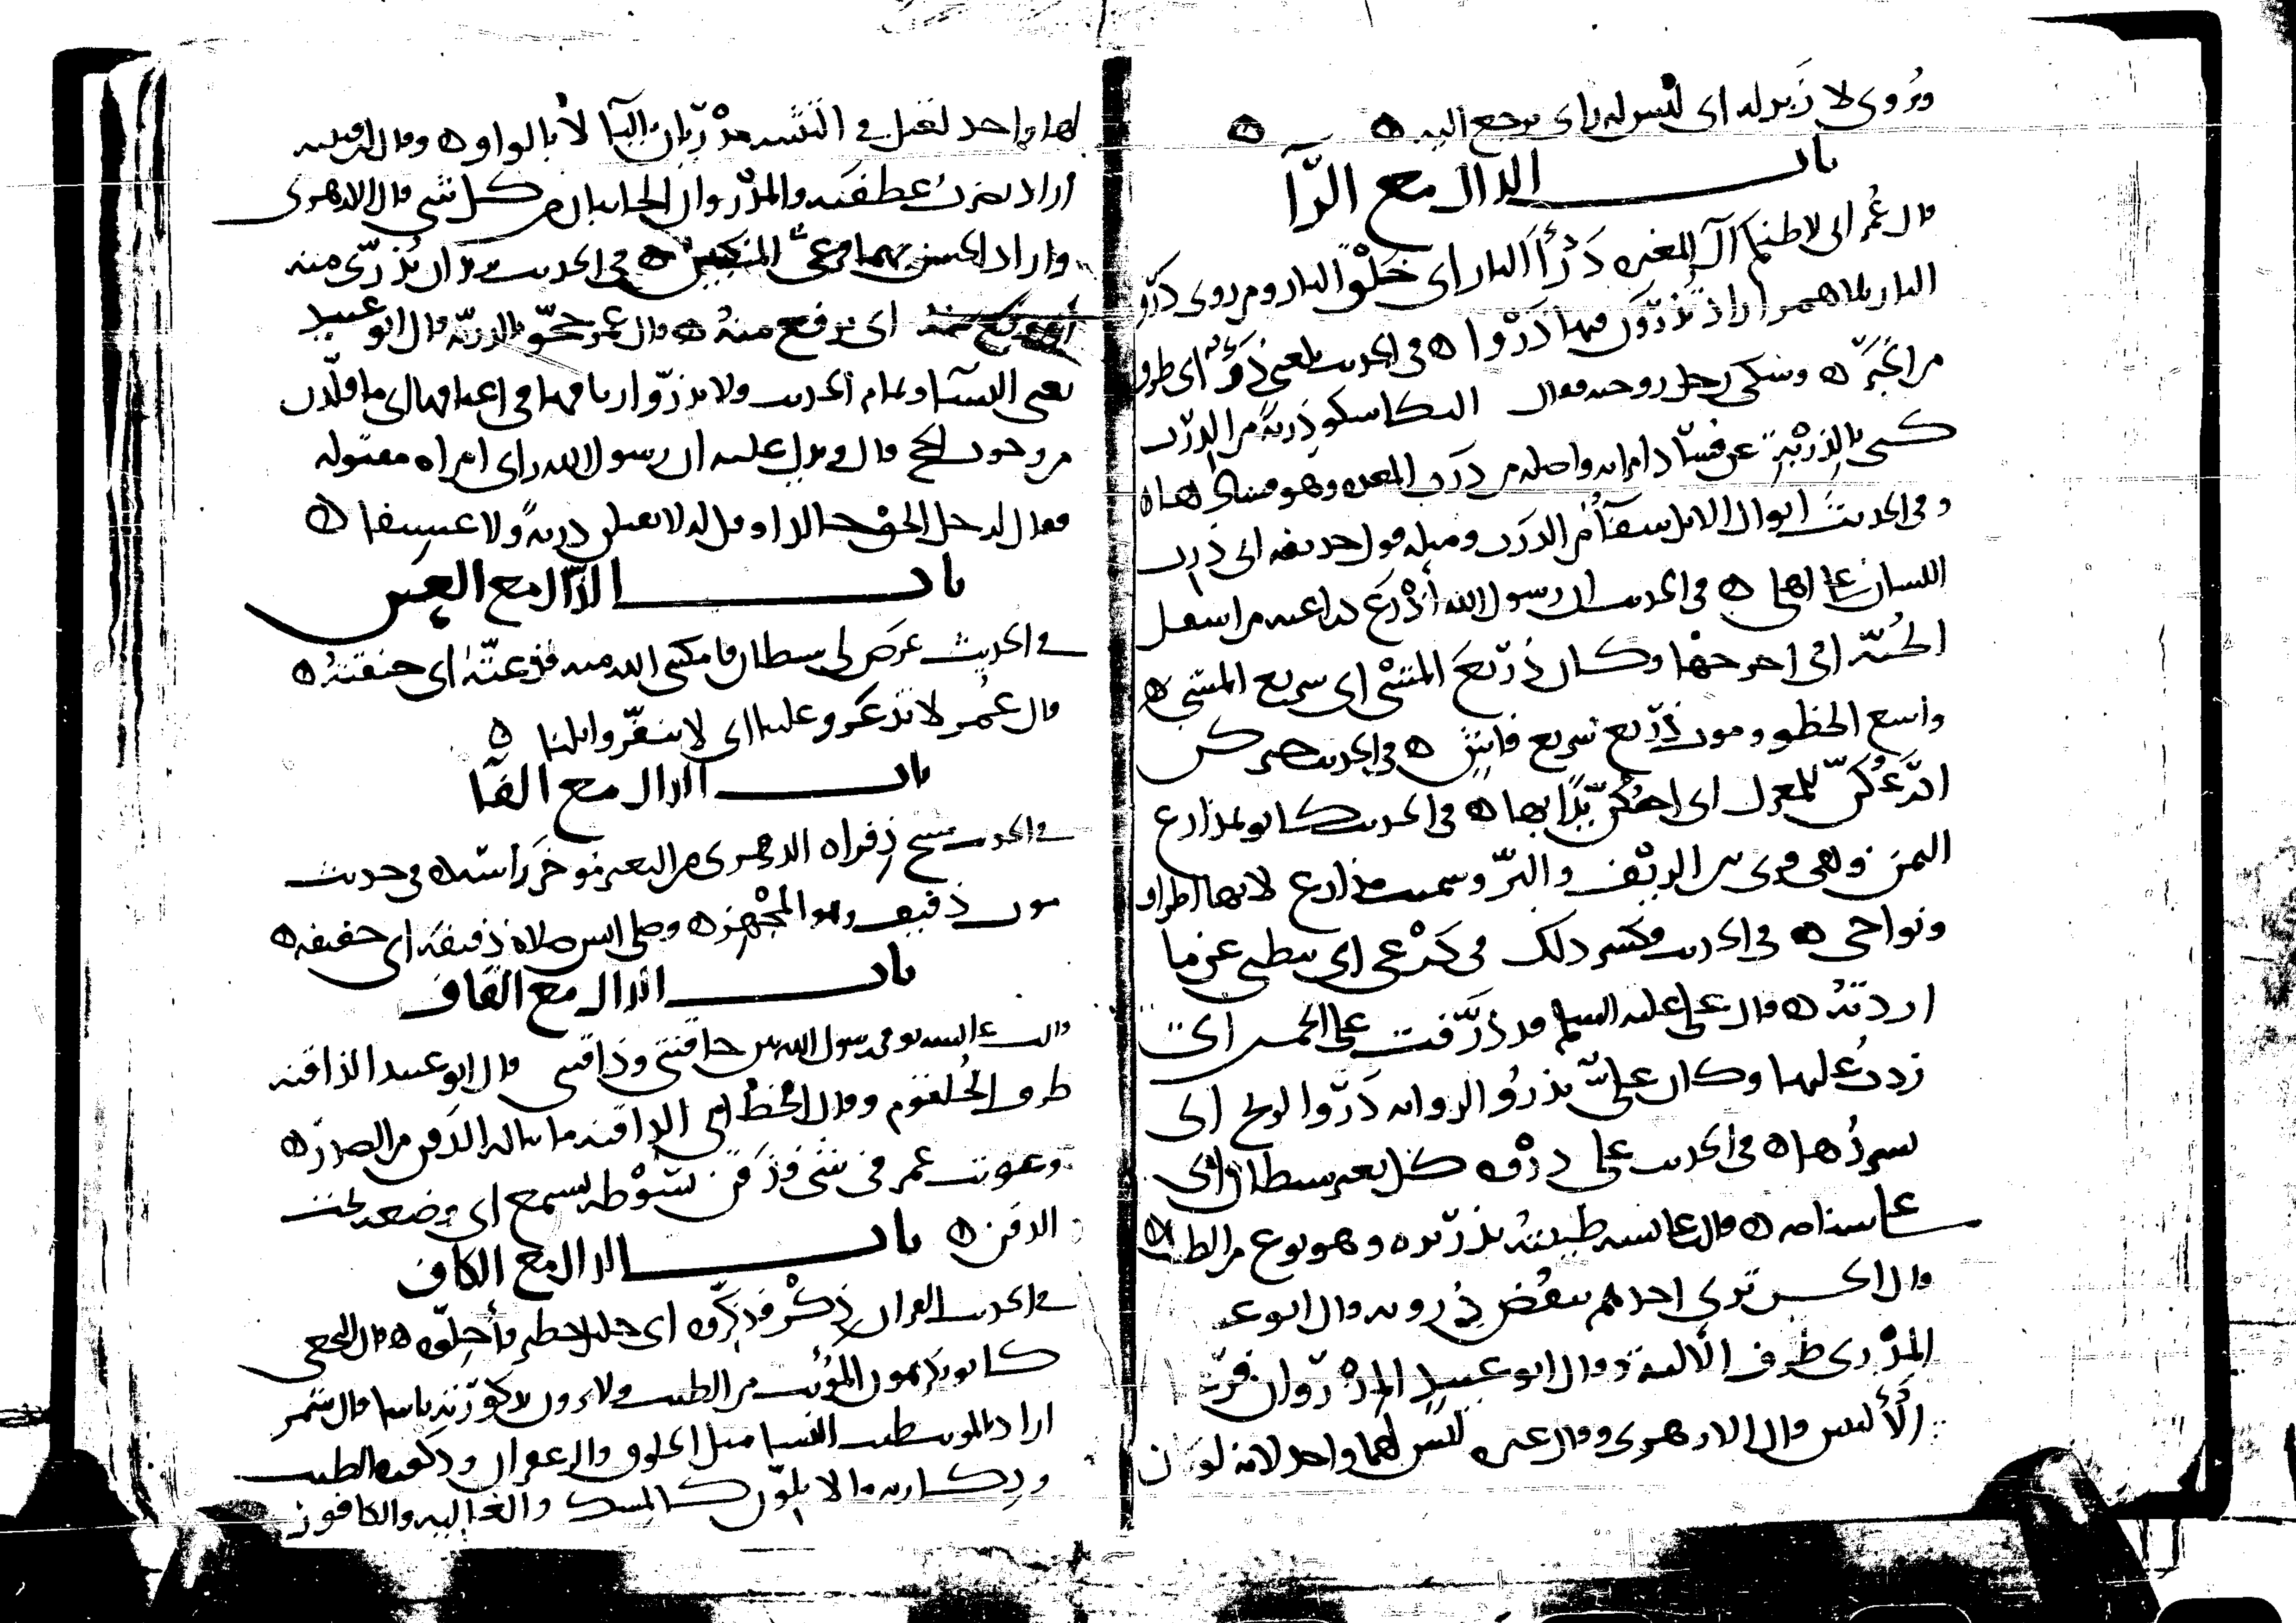 ويُروى لا زَبر له اى ليس له راى يرجع اليه ه ه
باب الذال مع الرّآ
قال عُمر انى لاظنكم آل المغيره ذَرْأَ النار اى خَلْق النار ومن روى ذَرْو
النار بلا همز اراد يُذرّون فيها ذَرْوا ه فى الحديث بلغنى ذَرْوٌ اى طرف
من الخبر ه وشكى رجل زوجته فقال اليك اشكو ذِربةً من الذرب
كنى بالذرْبة عن فساد امراته واصله من ذرب المعده وهو فسادها ه
وفى الحديث ابوال الابل شفآءٌ من الذرَب ومثله قول حذيفه انى ذرب
اللسان على اهلى ه فى الحديث ان رسول الله أذْرَعَ ذراعيه من اسفل
الجُبّة اى اخرجهما وكان ذريعَ المَشْى اى سريع المشى ه
واسع الخطو وموت ذريع سريع فاشٍ ه فى الحديث خيركن
اذرعكنّ للمغزل اى اخفكنّ يدًا بها ه فى الحديث كانو بمذارع
اليمن وهى قرى بين الريف والبرّ وسميت مذارع لانها اطراف
ونواحى ه فى الحديث فكسر ذلك فى ذَرْعى اى ثبطنى عن ما
اردتهُ ه قال على عليه السلم قد ذرَّفت على الخمسين اى
زدتُ عليها وكان علىّ يذروُ الروايه ذَرْوا الريح اى
يسردُها ه فى الحديث على ذرْوه كل بعير شيطان اى
على سنامه ه قالت عائشه طيبتهُ بذريره وهو نوع من الطيب ه
قال الحسن ترى احدهم ينفُض مِذرويه قال ابو عبيد
المِذْرى طرف الألية وقال ابو عبيد المِذْروان فرعا
الأليين قال الازهرى وقال غيره ليس لهما واحد لانه لو كان
لهما واحد لقيل فى التثنيه مِذْريان باليآ لا بالواو ه وقال ابن قتيبه
اراد يضرب عطفيه والمِذْروان الجانبان من كل شى قال الازهرى
واراد الحسن بهما فرعى المنكبين ه فى الحديث يريد ان يُذَرّى منه
اى يرفع منهُ ه وقال عمر حجّو بالذريّه قال ابو عبيد
يعنى النسآ وتمام الحديث ولا تذروا ارباقها فى اعناقها اى ما قلدت
من وجوب الحج قال ويدل عليه ان رسول الله راى امراه مقتوله
فقال لرجل الحقْ خالدا وقل له لا تقتلن ذريةً ولا عسيفا ه
باب الذال مع العين
فى الحديث عرَض لى شيطان فامكننى الله منه فذعتّهُ اى خنقتهُ ه
قال عُمر لا تذعروعلينا اى لا تنفّروا ابلنا ه
باب الذال مع الفآ
فى الحديث مسح ذِفراه الذفرى من البعير مؤخر راسه ه فى حديث
موت ذفيف وهو المُجْهز ه وصلى انس صلاه ذفيفه اى خفيفه ه
باب الذال مع القاف
قالت عائشه توفى رسول الله بين حاقنتى وذاقنتى قال ابو عبيد الذاقنه
طرف الحُلقوم وقال الخطابى الذاقنه ما يناله الذقن من الصدر ه
وعوتب عمر فى شى فذقن بسَوْطه يسمع اى وضعه تحت
الذقن ه باب الذال مع الكاف
فى الحديث القران ذكَرٌ فذكّروه اى جليل خطير فأجلّوه ه قال النخعى
كانو يكرهون المؤنث من الطيب ولا يرون بذكورته باسا قال شمر
اراد بالمونث طيب النسا مثل الخلوق والزعفران وذكوره الطيب
وذكارته ما لا يلوّن كالمسك والغاليه والكافور